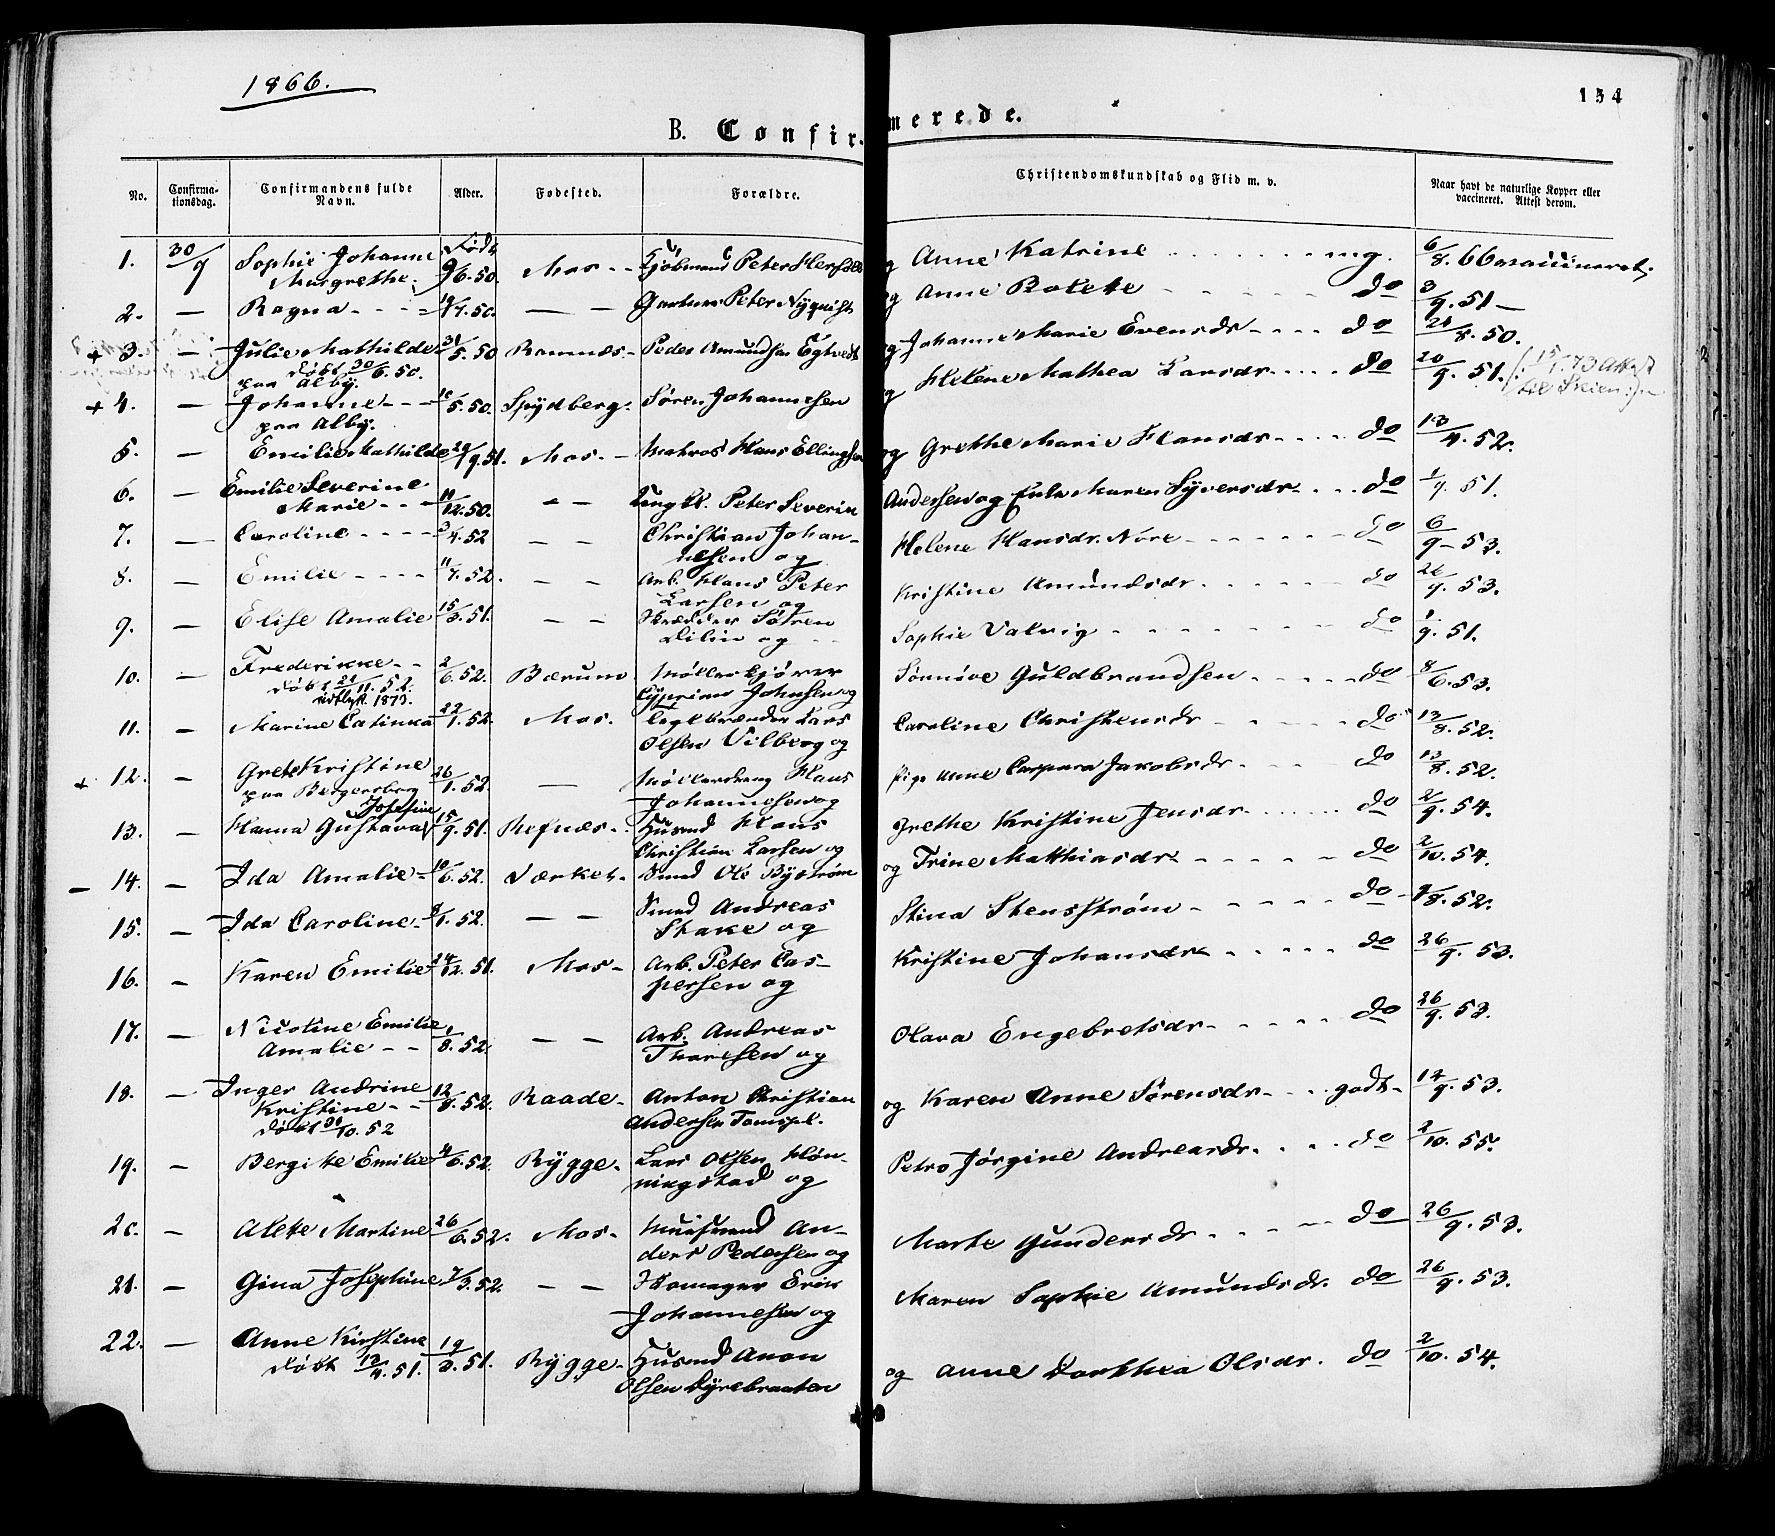 1866.
134
B. Confir-merede.
No. Confirma-tionsdag. Confirmandens fulde Navn. Alder. Fødested. Forældre. Christendomskundskab og Flid m. v. Naar havt de naturlige Kopper eller vaccineret. Attest derom.
1. 30/9 Sophie Johanne Født Kjøbmand Peter og Anne Katrine mg. 6/8. 66
Margrethe 9/6.50. Mos
2. — Ragna 7.50. — — Peter Nyquist og Anne do 3/9. 51 —
+ 3. — Julie Mathilde 31/5.50 Peder Amundsen Egtvedt og Johanne Marie Evensdr do 8.50.
døbt 30/6.50.
paa Alby.
+ 4. — Johanne 5.50. Spydberg. Søren Johannesen og Helene Mathea Larsdr do 20/9. 51. 73 Attest
paa Alby.
5. — Emilie Mathilde 9.51. Mos. Matros Hans Ellingsen og Grethe Marie Hansdr do 13/4. 52.
6. — Emilie Severine 11/12.50. — — Peter Severin Andersen og Maren Syversdr do 1/9. 51.
Marie
7. — Caroline 3/4.52 — — Christian Johan- Helene Hansdr. Nore do 6/9 53.
nesen og
8. — Emilie 11/7.52. — — Arb. Hans Peter Kristine Amundsdr do 26/9. 53.
Larsen og
9. — Elise Amalie 15/3.51. — — Skrædder Sören Sophie Valvig do 9. 51.
Lilin og
10. — Frederikke 2/6.52. Bærum Møllerkjører Guldbrandsen do 8/6. 53.
døbt 21/11. 52. Cyprian Johnsen og
udflyt. 1873.
11. — Marine Catinka 22/1.52. Mos. Teglbrænder Lars Caroline Christensdr do 13/8. 52.
Olsen Vilberg og
+ 12. — Grete Kristine 26/1.52. — Hans Pige Anne Caspara Jakobsdr do 13/8. 52.
paa Bergersborg Johannesen og
13. — Hanna Gustava Josefine 15/9.51. Refnæs. Husmd Hans Grethe Kristine Jensdr do 2/9. 54.
Christian Larsen og
— 14. — Ida Amalie 10/6.52. Værket. Smed Ole Byström og Trine Matthiasdr do 2/10. 54.
15. — Ida Caroline 1.52. — — Smed Andreas Stina Stensström do 8. 52.
Stake og
16. — Karen Emilie 24/12.51. Mos Arb. Peter Cas- Kristine Johansdr do 26/9. 53.
persen og
17. — Nicoline Emilie 1/8.52. — — Arb. Andreas Olava Engebretsdr do 26/9. 53.
Amalie Thoresen og
18. — Inger Andrine 12/8.52. Raade Anton Christian og Karen Anne Sørensdr godt 14/9. 53.
Kristine Andersen Tomspl.
døbt 31/10.52
19. — Bergitte Emilie 6.52. Rygge Lars Olsen Høn- Petro Jørgine Andreasdr do 2/10. 55.
ningstad og
20. — Alette Martine 26/6.52. Mos. Muurmand An- Marte Gundersdr do 26/9. 53.
ders Pedersen og
21. — Gina Josephine 7/3.52. — — Skomager Erik Maren Sophie Amundsdr. do 26/9. 53.
Johannesen og
22. — Anne Kirstine 19/3.51. Rygge Husmd Anon og Anne Dorthea Olsdr. do 2/10. 54.
døbt 13/4.51. Olsen Dyrebraaten